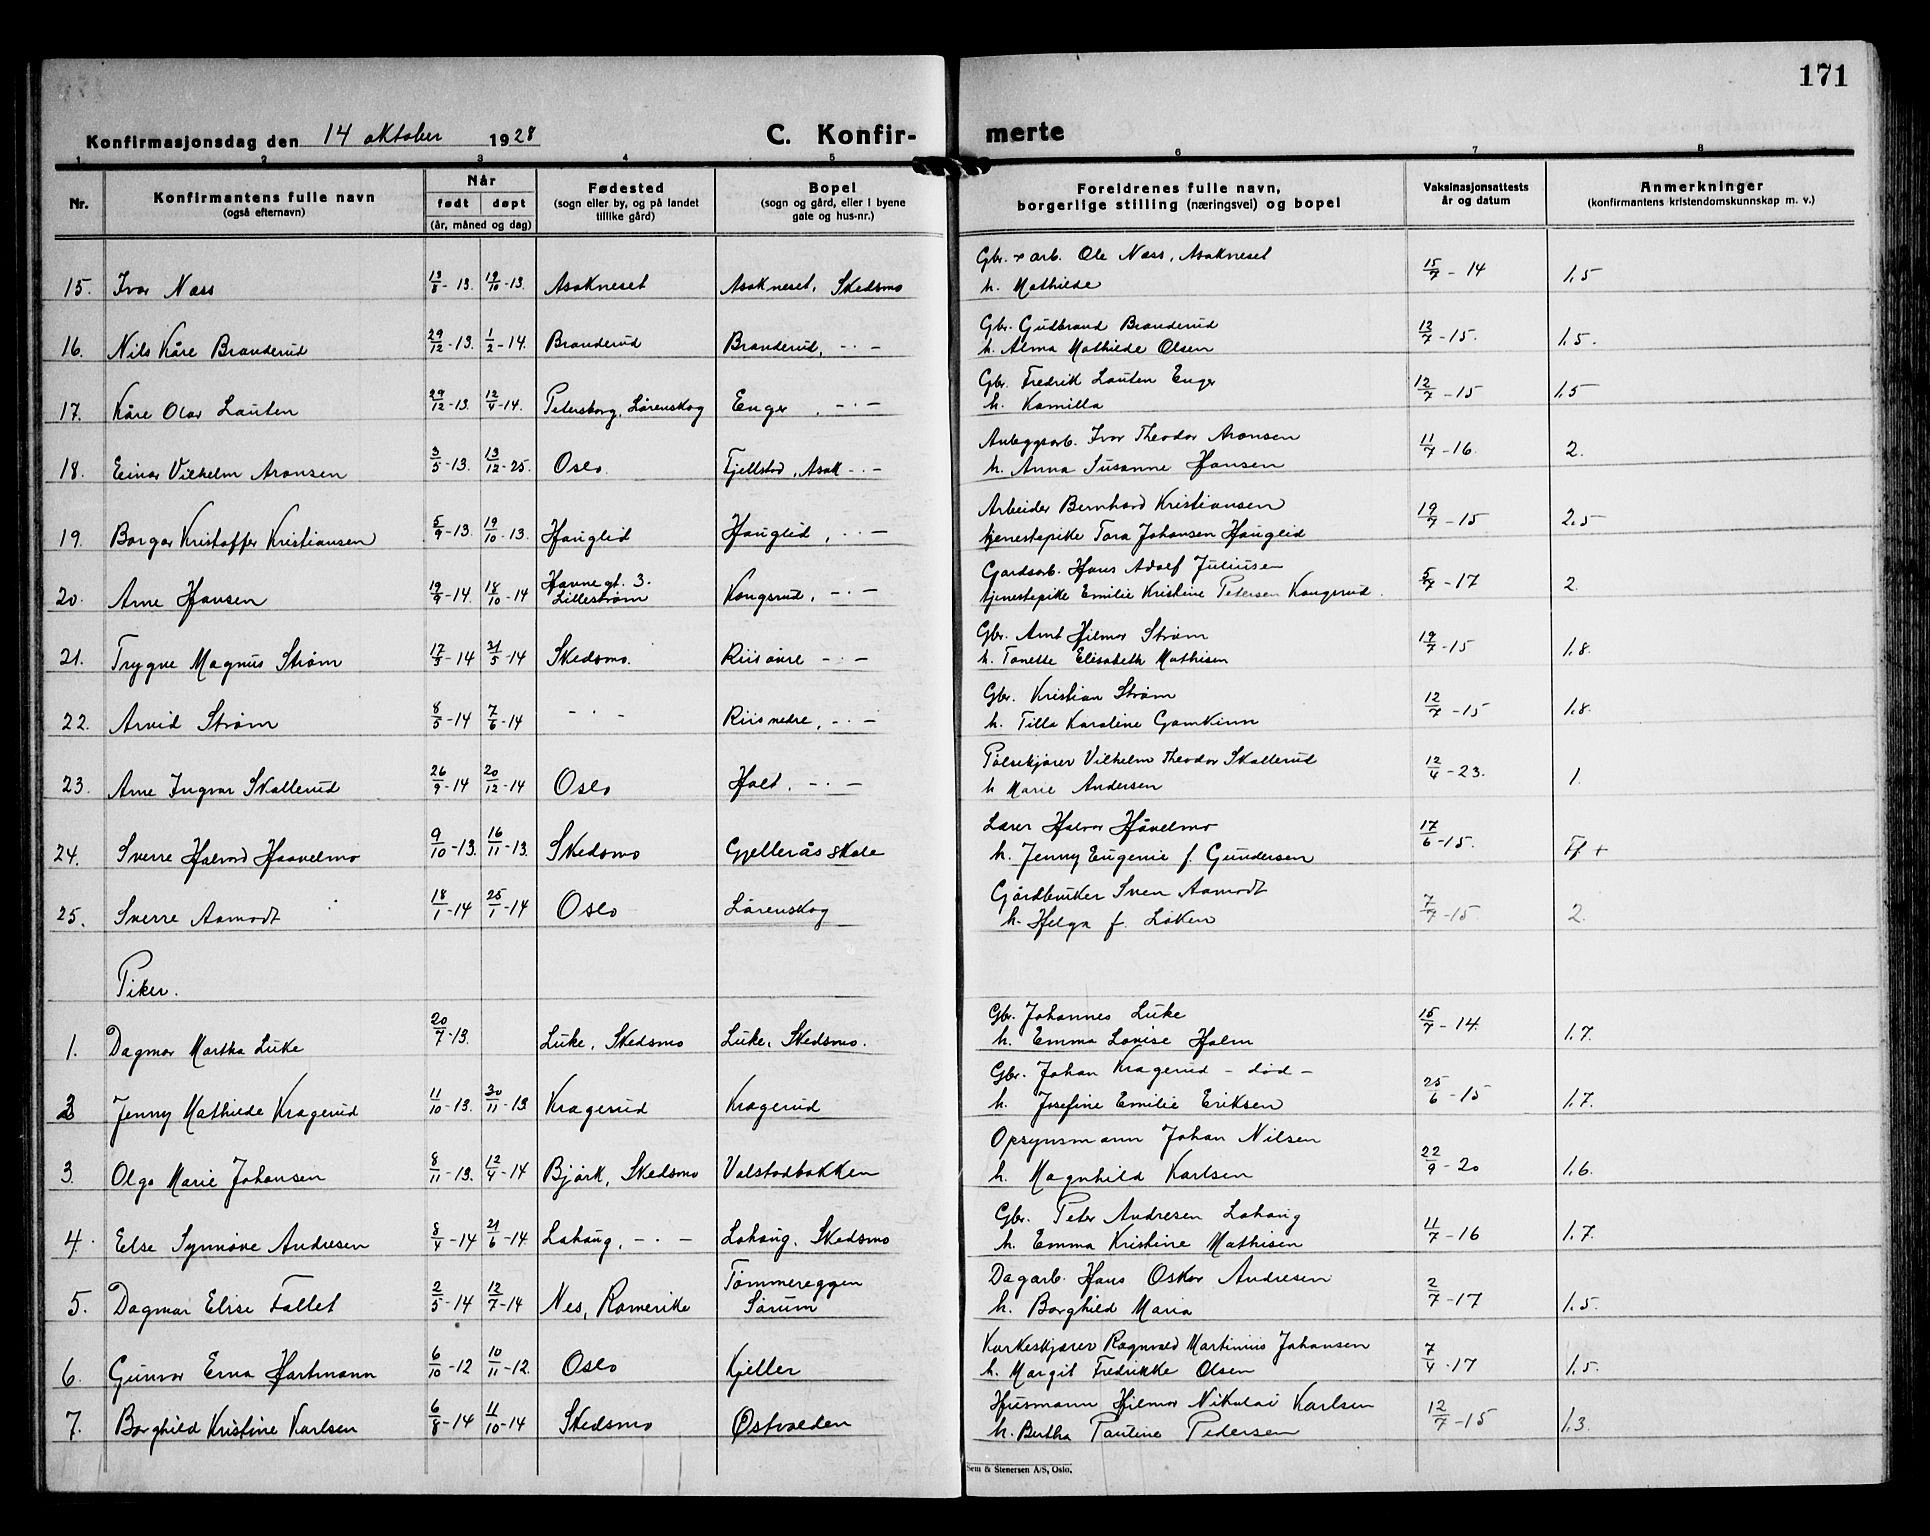 171
Konfirmasjonsdag den 14 oktober 1928
C. Konfir-
merte
1 2 3 4 5 6 7 8
Nr.
Konfirmantens fulle navn
(også efternavn)
Når
født døpt
(år, måned og dag)
Fødested
(sogn eller by, og på landet
tillike gård)
Bopel
(sogn og gård, eller i byene
gate og hus-nr.)
Foreldrenes fulle navn,
borgerlige stilling (næringsvei) og bopel
Vaksinasjonsattests
år og datum
Anmerkninger
(konfirmantens kristendomskunnskap m. v.)
Gbr. + arb. Ole Næss, Asakneset
15. Ivar Næss 13/8-13. 19/10-13. Asakneset Asakneset, Skedsmo h. Mathilde 15/7-14 1,5
Gbr. Gudbrand Branderud
16. Nils Kåre Branderud 29/12-13. 1/2-14. Branderud Branderud, -·- h. Alma Mathilde Olsen 12/7-15. 1,5.
Gbr. Fredrik Lauten Enger
17. Kåre Olav Lauten 29/12-13. 12/4-14. Petersborg, Lørenskog Enger, -·- h. Kamilla 12/7-15 1,5
Anleggsarb. Ivar Theodor Aronsen
18. Einar Vilhelm Aronsen 3/5-13. 13/12-25. Oslo Fjellstad, Asak -·- h. Anna Susanne Hansen 11/7-16. 2.
Arbeider Bernhard Kristiansen
19. Borgar Kristoffer Kristiansen 5/9-13 19/10-13. Hauglid Hauglid, -·- tjenestepike Tora Johansen Hauglid 19/7-15 2,5
Gardsarb. Hans Adolf Juliusen
20. Arne Hansen 19/9-14. 18/10-14 Havnegt. 3. Lillestrøm Kongsrud, -·- tjenestepike Emilie Kristine Petersen Kongsrud. 5/7-17 2.
Gbr. Arnt Hilmar Strøm
21. Trygve Magnus Strøm 17/3-14 21/5-14 Skedsmo. Riis øvre -·- h. Tanette Elisabeth Mathisen 19/7-15 1,8.
Gbr. Kristian Strøm
22. Arvid Strøm 8/5-14 7/6-14 -·- Riis nedre, -·- h. Tilla Karoline Gamkinn 12/7-15 1,8.
Pølsekjører Vilhelm Theodor Skallerud
23. Arne Ingvar Skallerud 26/9-14 20/12-14 Oslo Holt, -·- h Marie Andersen 12/4-23. 1.
Lærer Halvor Håvelmo
24. Sverre Halvord Haavelmo 9/10-13. 16/11-13. Skedsmo Gjellerås skole h. Jenny Eugenie f. Gundersen 17/6-15. Ff +
Gårdbruker Sven Aamodt
25. Sverre Aamodt 18/1-14 25/1-14 Oslo Lørenskog h. Helga f. Løken 7/7-15. 2.
Piker.
Gbr. Johannes Luke
1. Dagmar Martha Luke 20/7-13. Luke, Skedsmo Luke, Skedsmo. h. Emma Lovise Holm 15/7-14. 1,7.
Gbr. Johan Kragerud - død -
2 Jenny Mathilde Kragerud 11/10-13. 30/11-13 Kragerud Kragerud h. Josefine Emilie Eriksen 25/6-15 1,7.
Opsynsmann Johan Nilsen
3. Olga Marie Johansen 8/11-13. 12/4-14 Bjørk, Skedsmo Volstadbakken h. Magnhild Karlsen 22/9-20 1,6.
Gbr. Peter Andresen Lahaug
4. Else Synnøve Andresen 8/4-14 21/6-14 Lahaug, -·- Lahaug, Skedsmo h. Emma Kristine Mathisen 11/7-16 1,7.
Dagarb. Hans Oskar Andresen
5. Dagmar Elise Fallet 2/5-14 12/7-14 Nes, Romerike Tømmereggen Sørum h. Borghild Maria 2/7-17 1,5.
Karkeskjører Ragnvald Martinius Johansen
6. Gunvor Erna Hartmann 6/10-12 10/11-12. Oslo Kjeller h. Margit Fredrikke Olsen 7/4-17 1,5.
Husmann Hilmar Nikolai Karlsen
7. Borghild Kristine Karlsen 6/8-14 11/10-14 Skedsmo Østvolden h. Bertha Pauline Pedersen 12/7-15 1,3.
Sem & Stenersen A/S, Oslo.